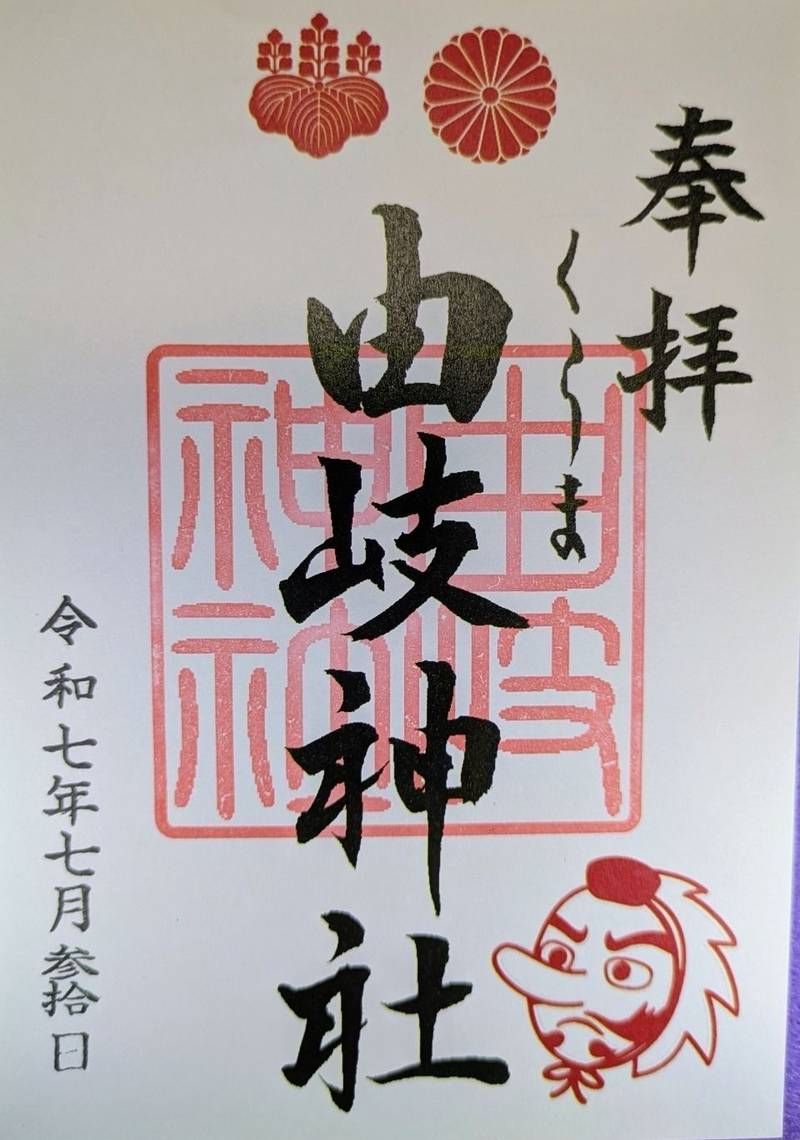 奉拝
くらま
由岐神社
由岐
神社
令和七年七月参拾日